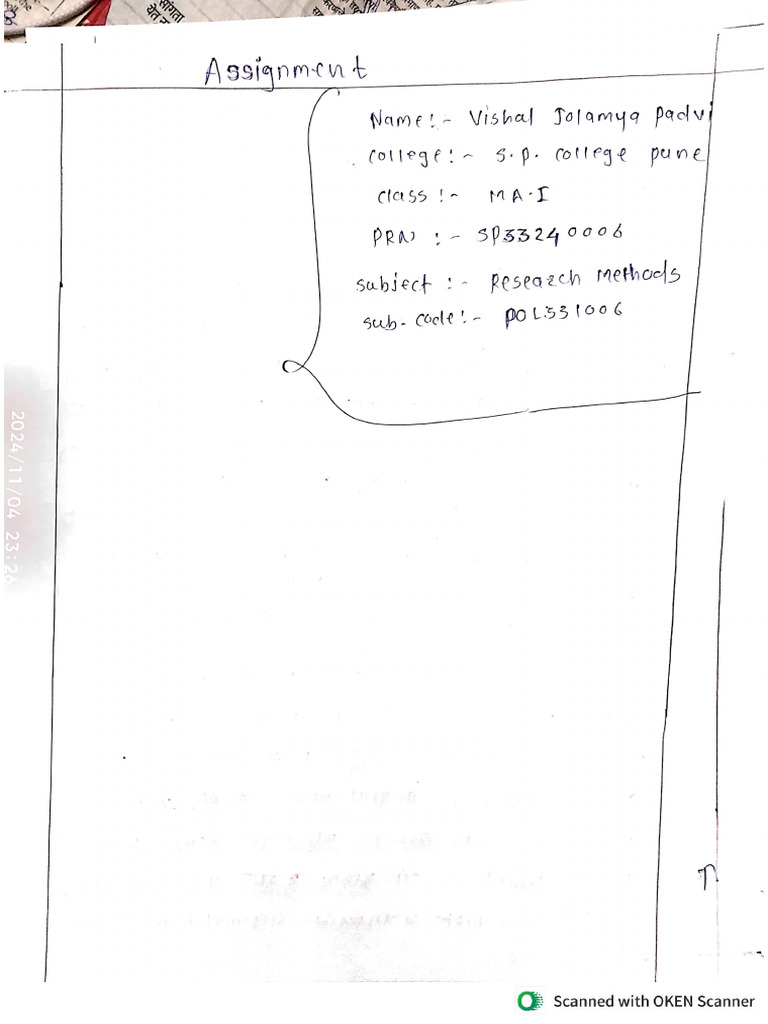 Assignment
Name:- Vishal Jolamya Padvi
college:- S.P. college pune
class:- MA-I
PRN :- SP33240006
subject :- Research Methods
sub-code:- POL531006
2024/11/04 23:26
Scanned with OKEN Scanner